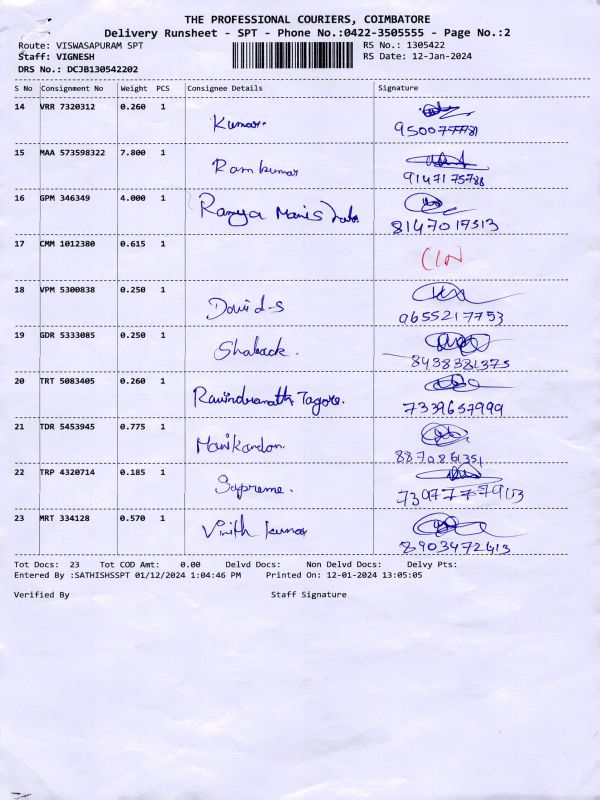 THE PROFESSIONAL COURIERS, COIMBATORE
Delivery Runsheet - SPT - Phone No.:0422-3505555 - Page No.:2
Route: VISWASAPURAM SPT RS No.: 1305422
Staff: VIGNESH RS Date: 12-Jan-2024
DRS No.: DCJB130542202
S No Consignment No Weight PCS Consignee Details Signature
14 VRR 7320312 0.260 1
Kumar
15 MAA 573598322 7.800 1
Ramkumar
9147175788
16 GPM 346349 4.000 1
Ramya Manis
8147017513
17 CMM 1012380 0.615 1
18 VPM 5300838 0.250 1
David-S
9655217753
19 GDR 5333085 0.250 1
Shaback.
8438381375
20 TRT 5083405 0.260 1
Ravindranath Tagore.
7339657999
21 TDR 5453945 0.775 1
Manikandan.
22 TRP 4320714 0.185 1
Supreme.
23 MRT 334128 0.570 1
Vinith kumar
8903472413
Tot Docs: 23 Tot COD Amt: 0.00 Delvd Docs: Non Delvd Docs: Delvy Pts:
Entered By :SATHISHSSPT 01/12/2024 1:04:46 PM Printed On: 12-01-2024 13:05:05
Verified By Staff Signature